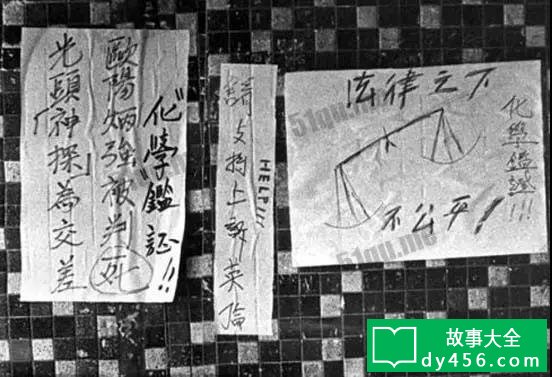 “化學”鑑証!!
歐陽炳強被判死
光頭「神探」為交差
HELP!!!
請支持上訴英倫
法律之下
不公平!
化學鑑證!!!
51qu.me
51qu.me
51qu.me
故事大全
dy456.com